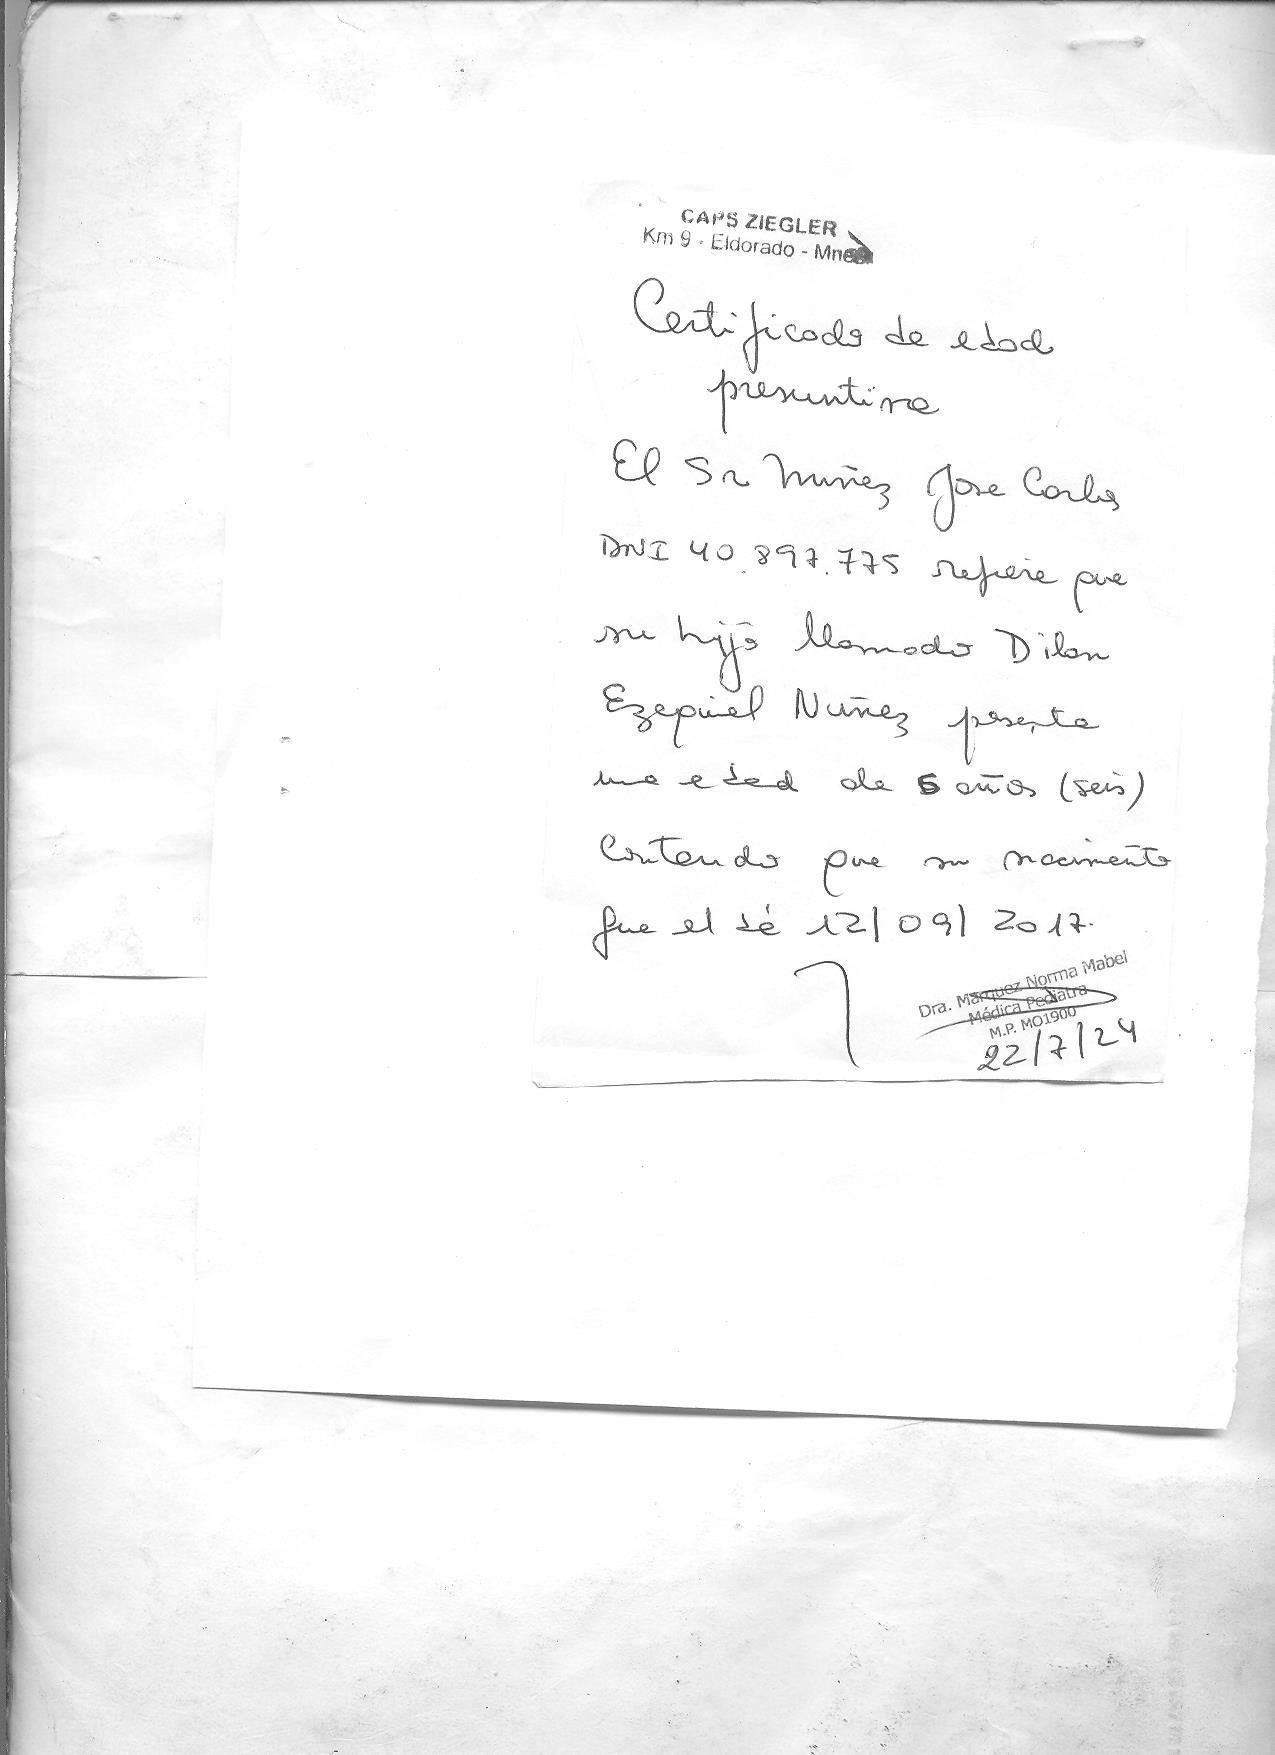 CAPS ZIEGLER
Km 9 - Eldorado - Mnes
Certificado de edad
presuntiva
El Sr Nuñez Jose Carlos
DNI 40.897.775 refiere que
su hijo llamado Dilan
Ezequiel Nuñez presenta
una edad de 6 años (seis)
Contando que su nacimiento
fue el dé 12/09/2017.
Dra. Márquez Norma Mabel
Médica Pediatra
M.P. MO1900
22/7/24